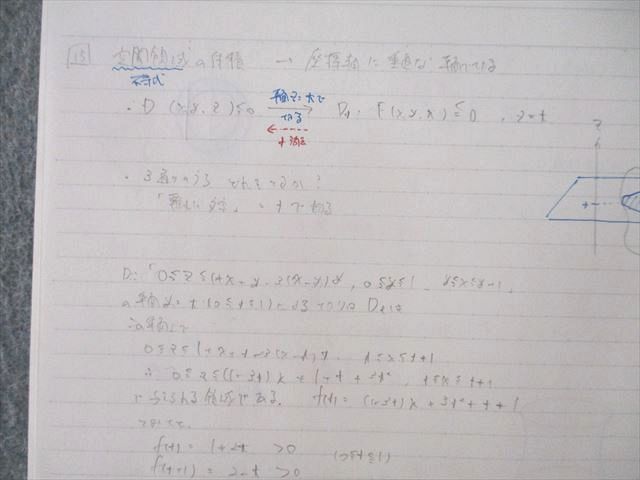 13 空間領域の体積 → 座標軸に垂直な平面で切る
不等式
・D (x, y, z) ≦ 0 平面 z = t で 切る D_t : F(x, y, t) ≦ 0 , z = t
t
z
・3通りのうち どれで切るか?
t で切る
D: 0 ≦ z ≦ 1+x+y-3(x-y)y , 0 ≦ y ≦ 1 , y ≦ x ≦ y+1
の平面 y = t (0 ≦ t ≦ 1) による切り口 D_t は
この平面上で
0 ≦ z ≦ 1+x+t-3(x-t)t , t ≦ x ≦ t+1
∴ 0 ≦ z ≦ (1-3t)x+1+t+3t² , t ≦ x ≦ t+1
で与えられる領域である. f(x) = (1-3t)x+3t²+t+1
f(t) = 1+2t > 0 (0 ≦ t ≦ 1)
f(t+1) = 2-t > 0